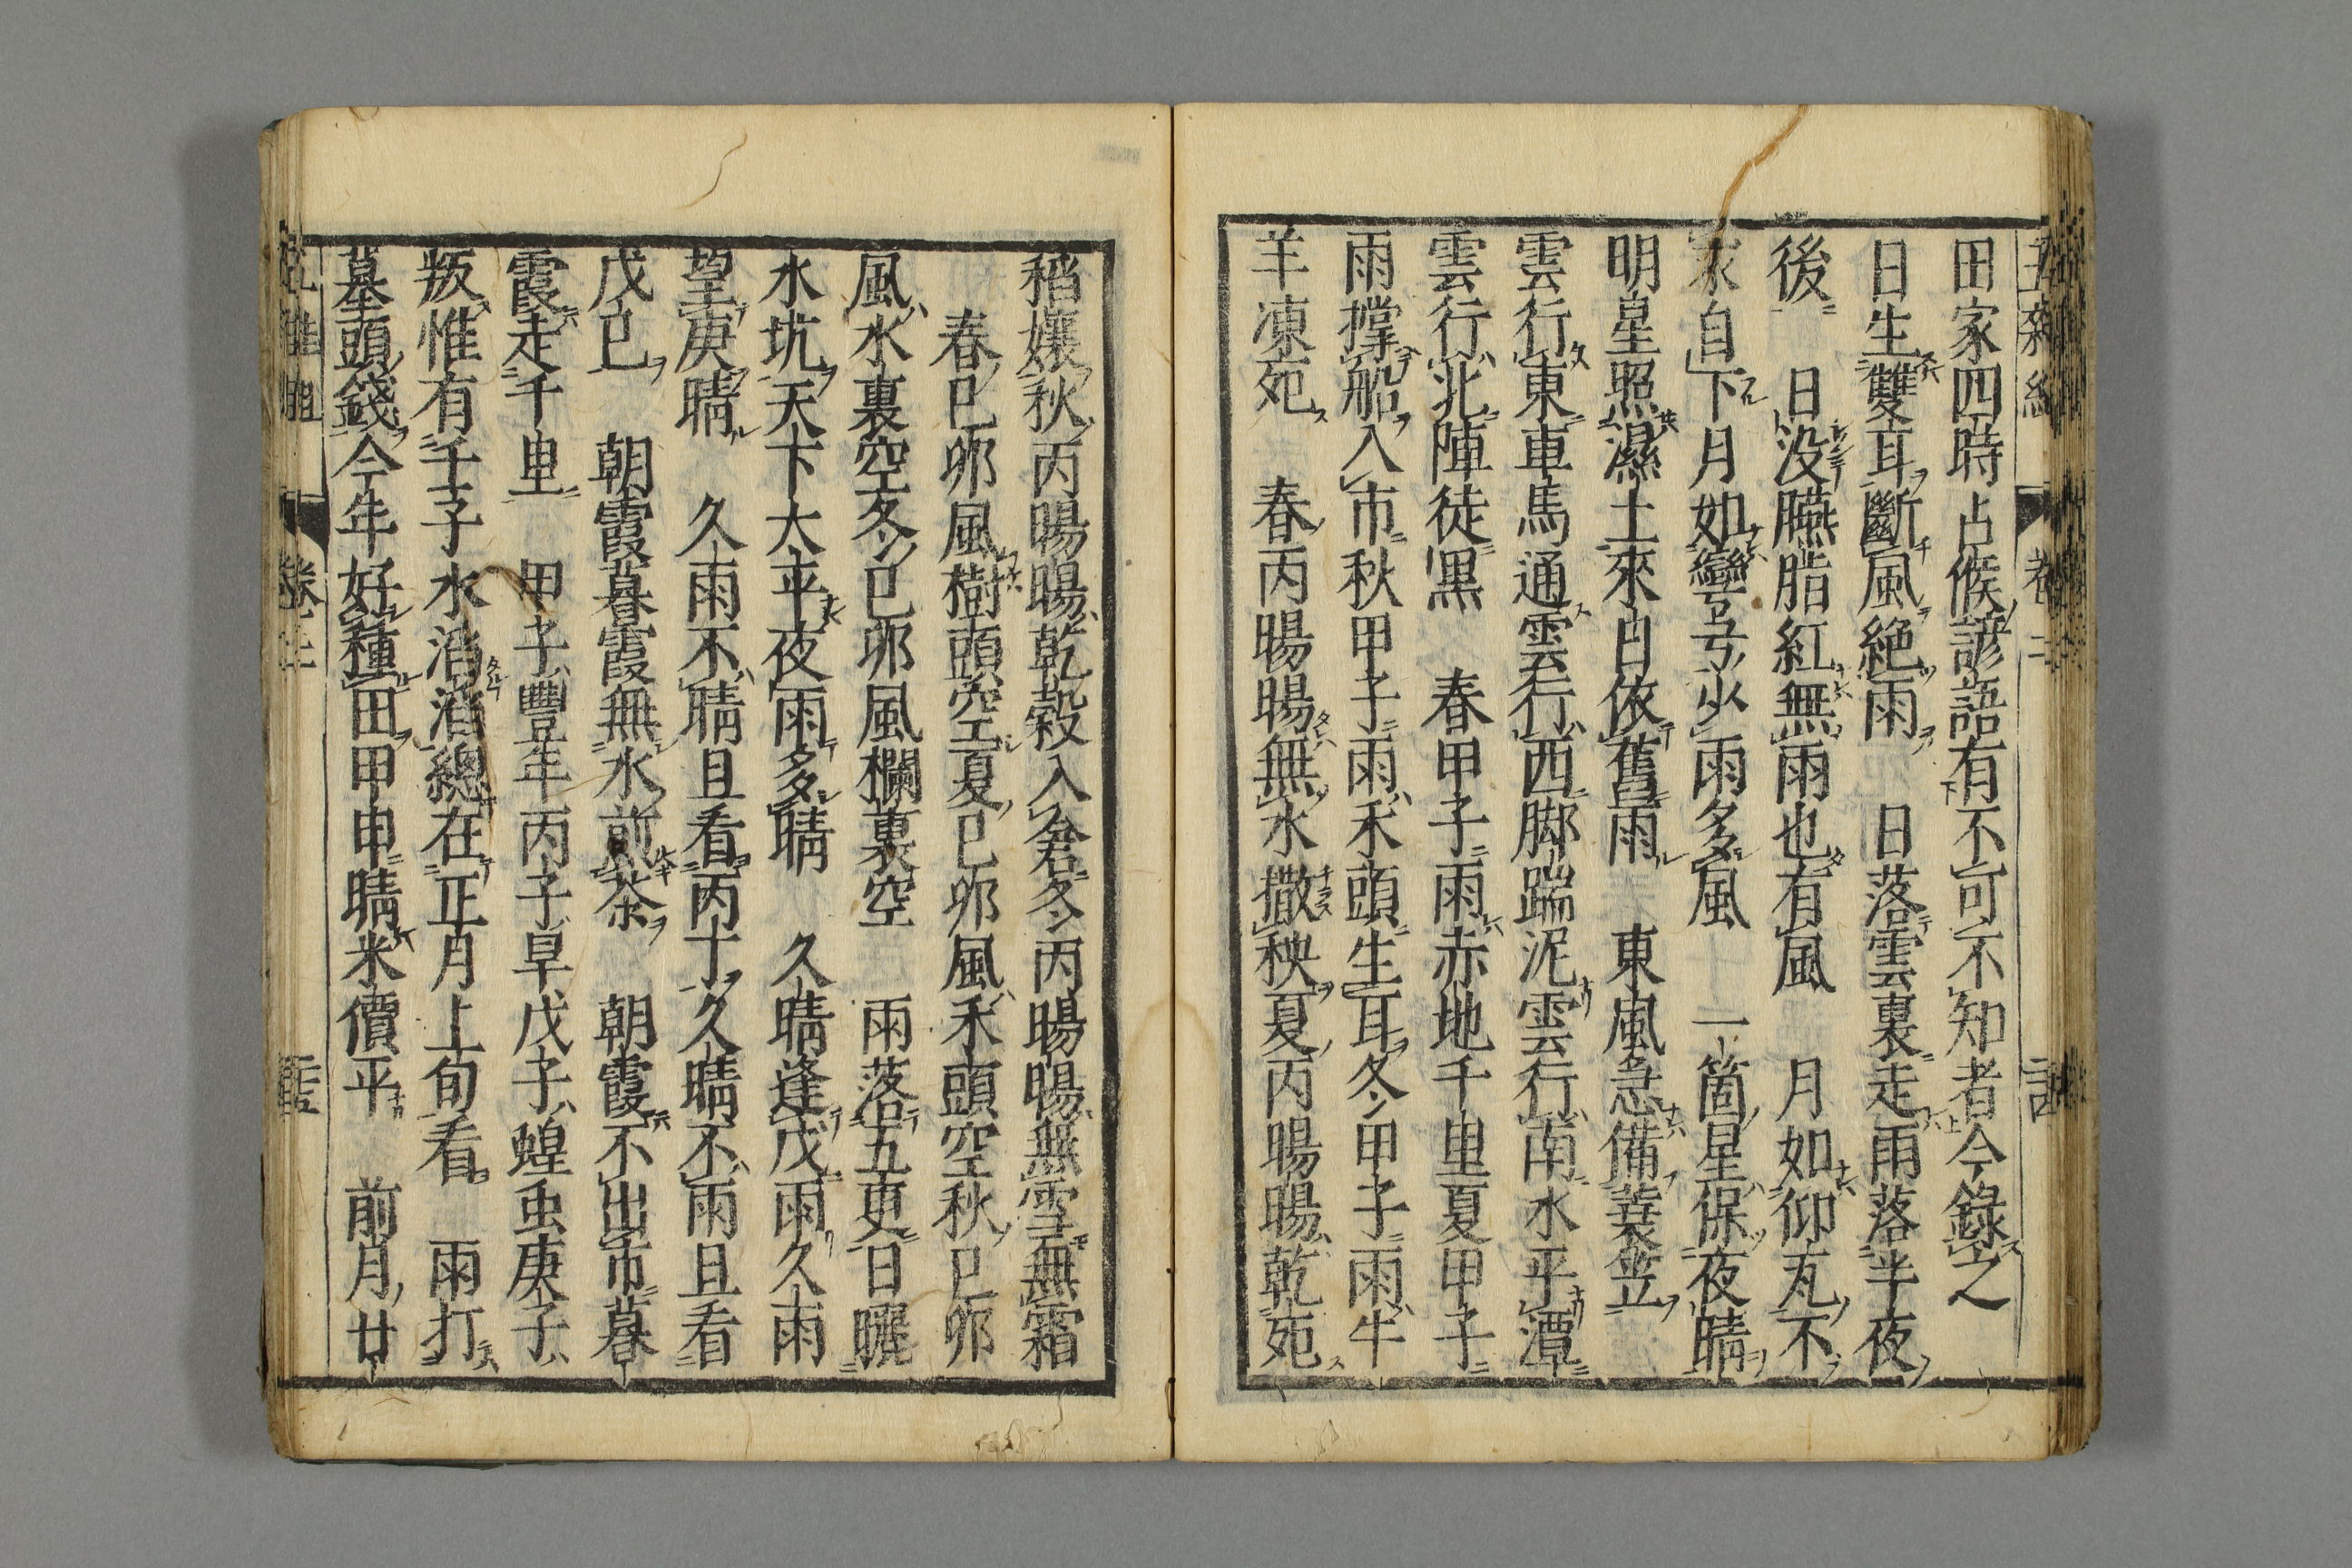 田家四時占候諺語有不可不知者今錄之
日生雙耳斷風絶雨　日落雲裏走雨落半夜
後　日没臙脂紅無雨也有風　月如仰瓦不
求自下月如彎弓少雨多風　一箇星保夜晴
明星照濕土來日依舊雨　東風急備蓑笠
雲行東車馬通雲行西脚踹泥雲行南水平潭
雲行北陣徒黒　春甲子雨赤地千里夏甲子
雨撑船入市秋甲子雨禾頭生耳冬甲子雨牛
羊凍死　春丙暘暘無水撒秧夏丙暘暘乾死
稻孃秋丙暘暘乾穀入倉冬丙暘暘無雪無霜
春巳卯風樹頭空夏巳卯風禾頭空秋巳卯
風水裏空冬巳卯風欄裏空　雨落五更日曬
水坑天下大平夜雨多晴　久晴逢戊雨久雨
望庚晴　久雨不晴且看丙丁久晴不雨且看
戊巳　朝霞暮霞無水煎茶　朝霞不出市暮
霞走千里　甲子豐年丙子旱戊子蝗虫庚子
叛惟有壬子水滔滔總在正月上旬看　雨打
墓頭錢今年好種田甲申晴米價平　前月廿
卷二